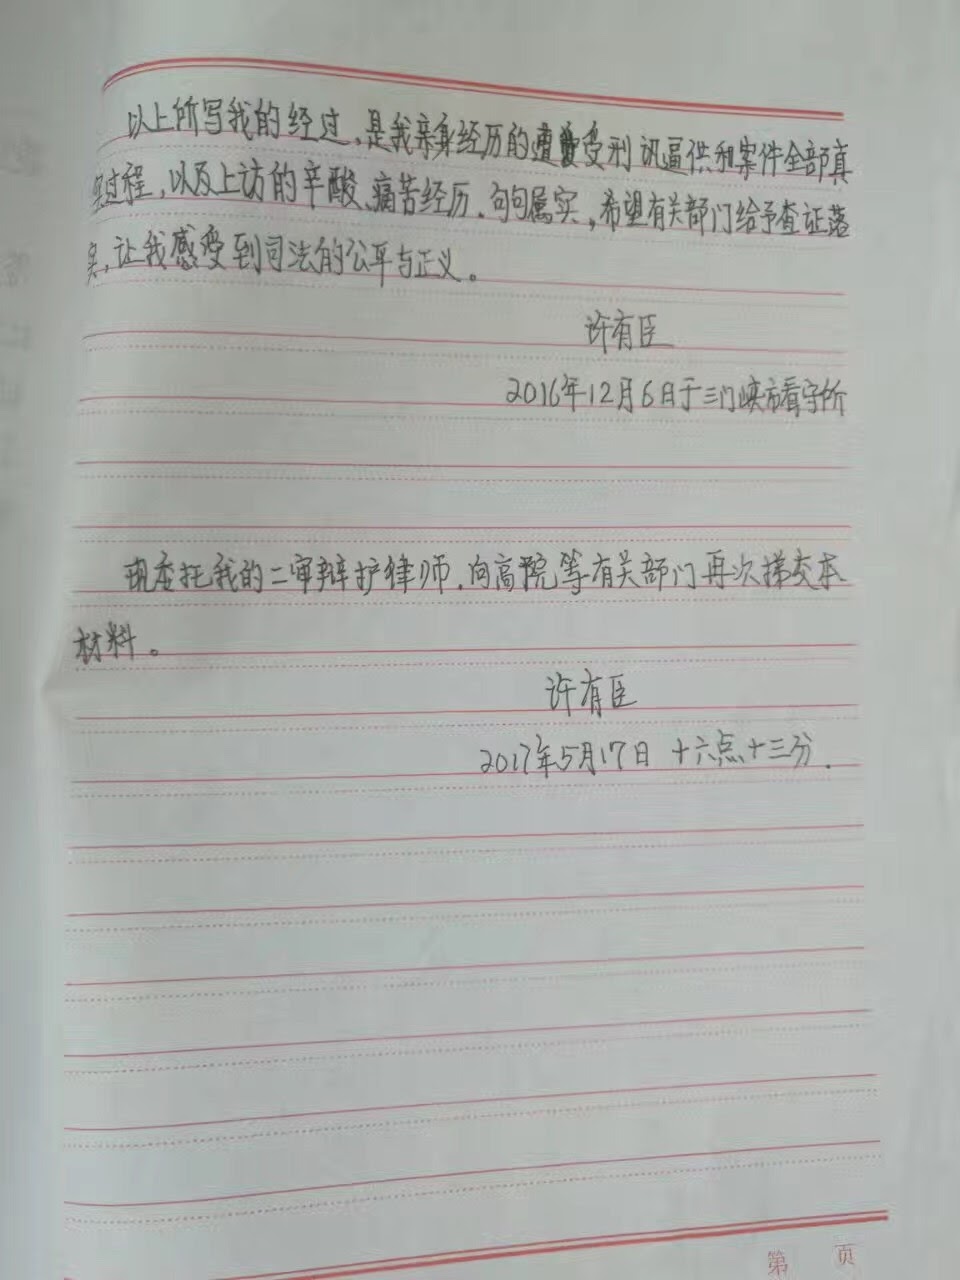 以上所写我的经过,是我亲身经历的遭受刑讯逼供和案件全部真
实过程,以及上访的辛酸、痛苦经历.句句属实,希望有关部门给予查证落
实,让我感受到司法的公平与正义。
许有臣
2016年12月6日于三门峡市看守所
现委托我的二审辩护律师.向高院等有关部门再次递交本
材料。
许有臣
2017年5月17日 十六点十三分.
第 页